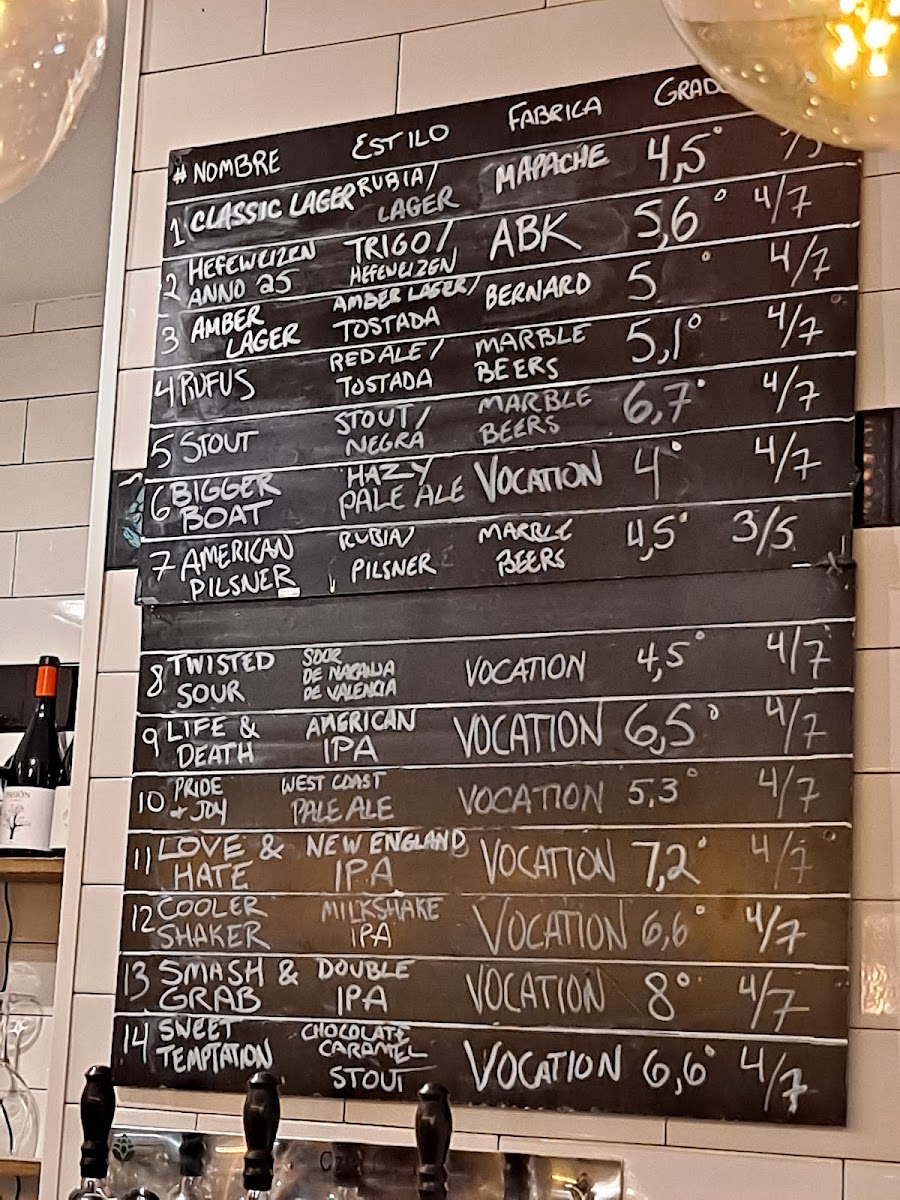 # NOMBRE ESTILO FABRICA GRAD
1 CLASSIC LAGER RUBIA/ LAGER MAPACHE 4,5°
2 HEFEWEIZEN ANNO '25 TRIGO/ HEFEWEIZEN ABK 5,6° 4/7
3 AMBER LAGER AMBER LAGER/ TOSTADA BERNARD 5° 4/7
4 RUFUS RED ALE/ TOSTADA MARBLE BEERS 5,1° 4/7
5 STOUT STOUT/ NEGRA MARBLE BEERS 6,7° 4/7
6 BIGGER BOAT HAZY PALE ALE VOCATION 4° 4/7
7 AMERICAN PILSNER RUBIA/ PILSNER MARBLE BEERS 4,5° 3/5
8 TWISTED SOUR SOUR DE NARANJA DE VALENCIA VOCATION 4,5° 4/7
9 LIFE & DEATH AMERICAN IPA VOCATION 6,5° 4/7
10 PRIDE & JOY WEST COAST PALE ALE VOCATION 5,3° 4/7
11 LOVE & HATE NEW ENGLAND IPA VOCATION 7,2° 4/7
12 COOLER SHAKER MILKSHAKE IPA VOCATION 6,6° 4/7
13 SMASH & GRAB DOUBLE IPA VOCATION 8° 4/7
14 SWEET TEMPTATION CHOCOLATE CARAMEL STOUT VOCATION 6,6° 4/7